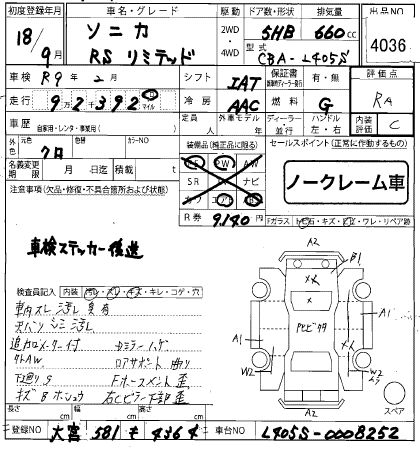 初度登録年月 車名・グレード 駆動 ドア数・形状 排気量 出品NO
18/9月 ソニカ RS リミテッド 2WD・4WD 5HB 660cc 4036
型式 CBA-L405S
車検 R9年2月 シフト IAT 保証書 有・無 評価点 RA
走行 9万2千392 マイル 冷房 AAC 燃料 G 内装 C
車歴 自家用・レンタ・事業用( ) 定員 人 外車モデル 年 ディーラー・並行 ハンドル 左・右
外色 元色 色替 カラーNO
クロ
装備品(純正品に限る)
PW AW
SR ナビ
カワ エアB
セールスポイント(正常に作動するもの)
ノークレーム車
名義変更期限 月 日 積載 t
R券 9140円
注意事項(欠品・修復・不具合箇所および状態)
Fガラス トビ石・キズ・ヒビ・ワレ・リペア跡
車検ステッカー後送
検査員記入 内装 汚レ・スレ・キズ・キレ・コゲ・穴
車内スレ汚レ臭有
天バリシミ汚レ
追加メーター付 Dミラーハゲ
外AW ロアサポート曲り
下廻りS Fホースメント歪
キズBホシュウ 右Cピラー下部歪
A2
B1
XX
X
PセビタタA1
A1
XX
W2
W2
A2
スペア
長さ cm 幅 cm 高さ cm
登録NO 大宮 581 モ 4364 車台NO L405S-0008252